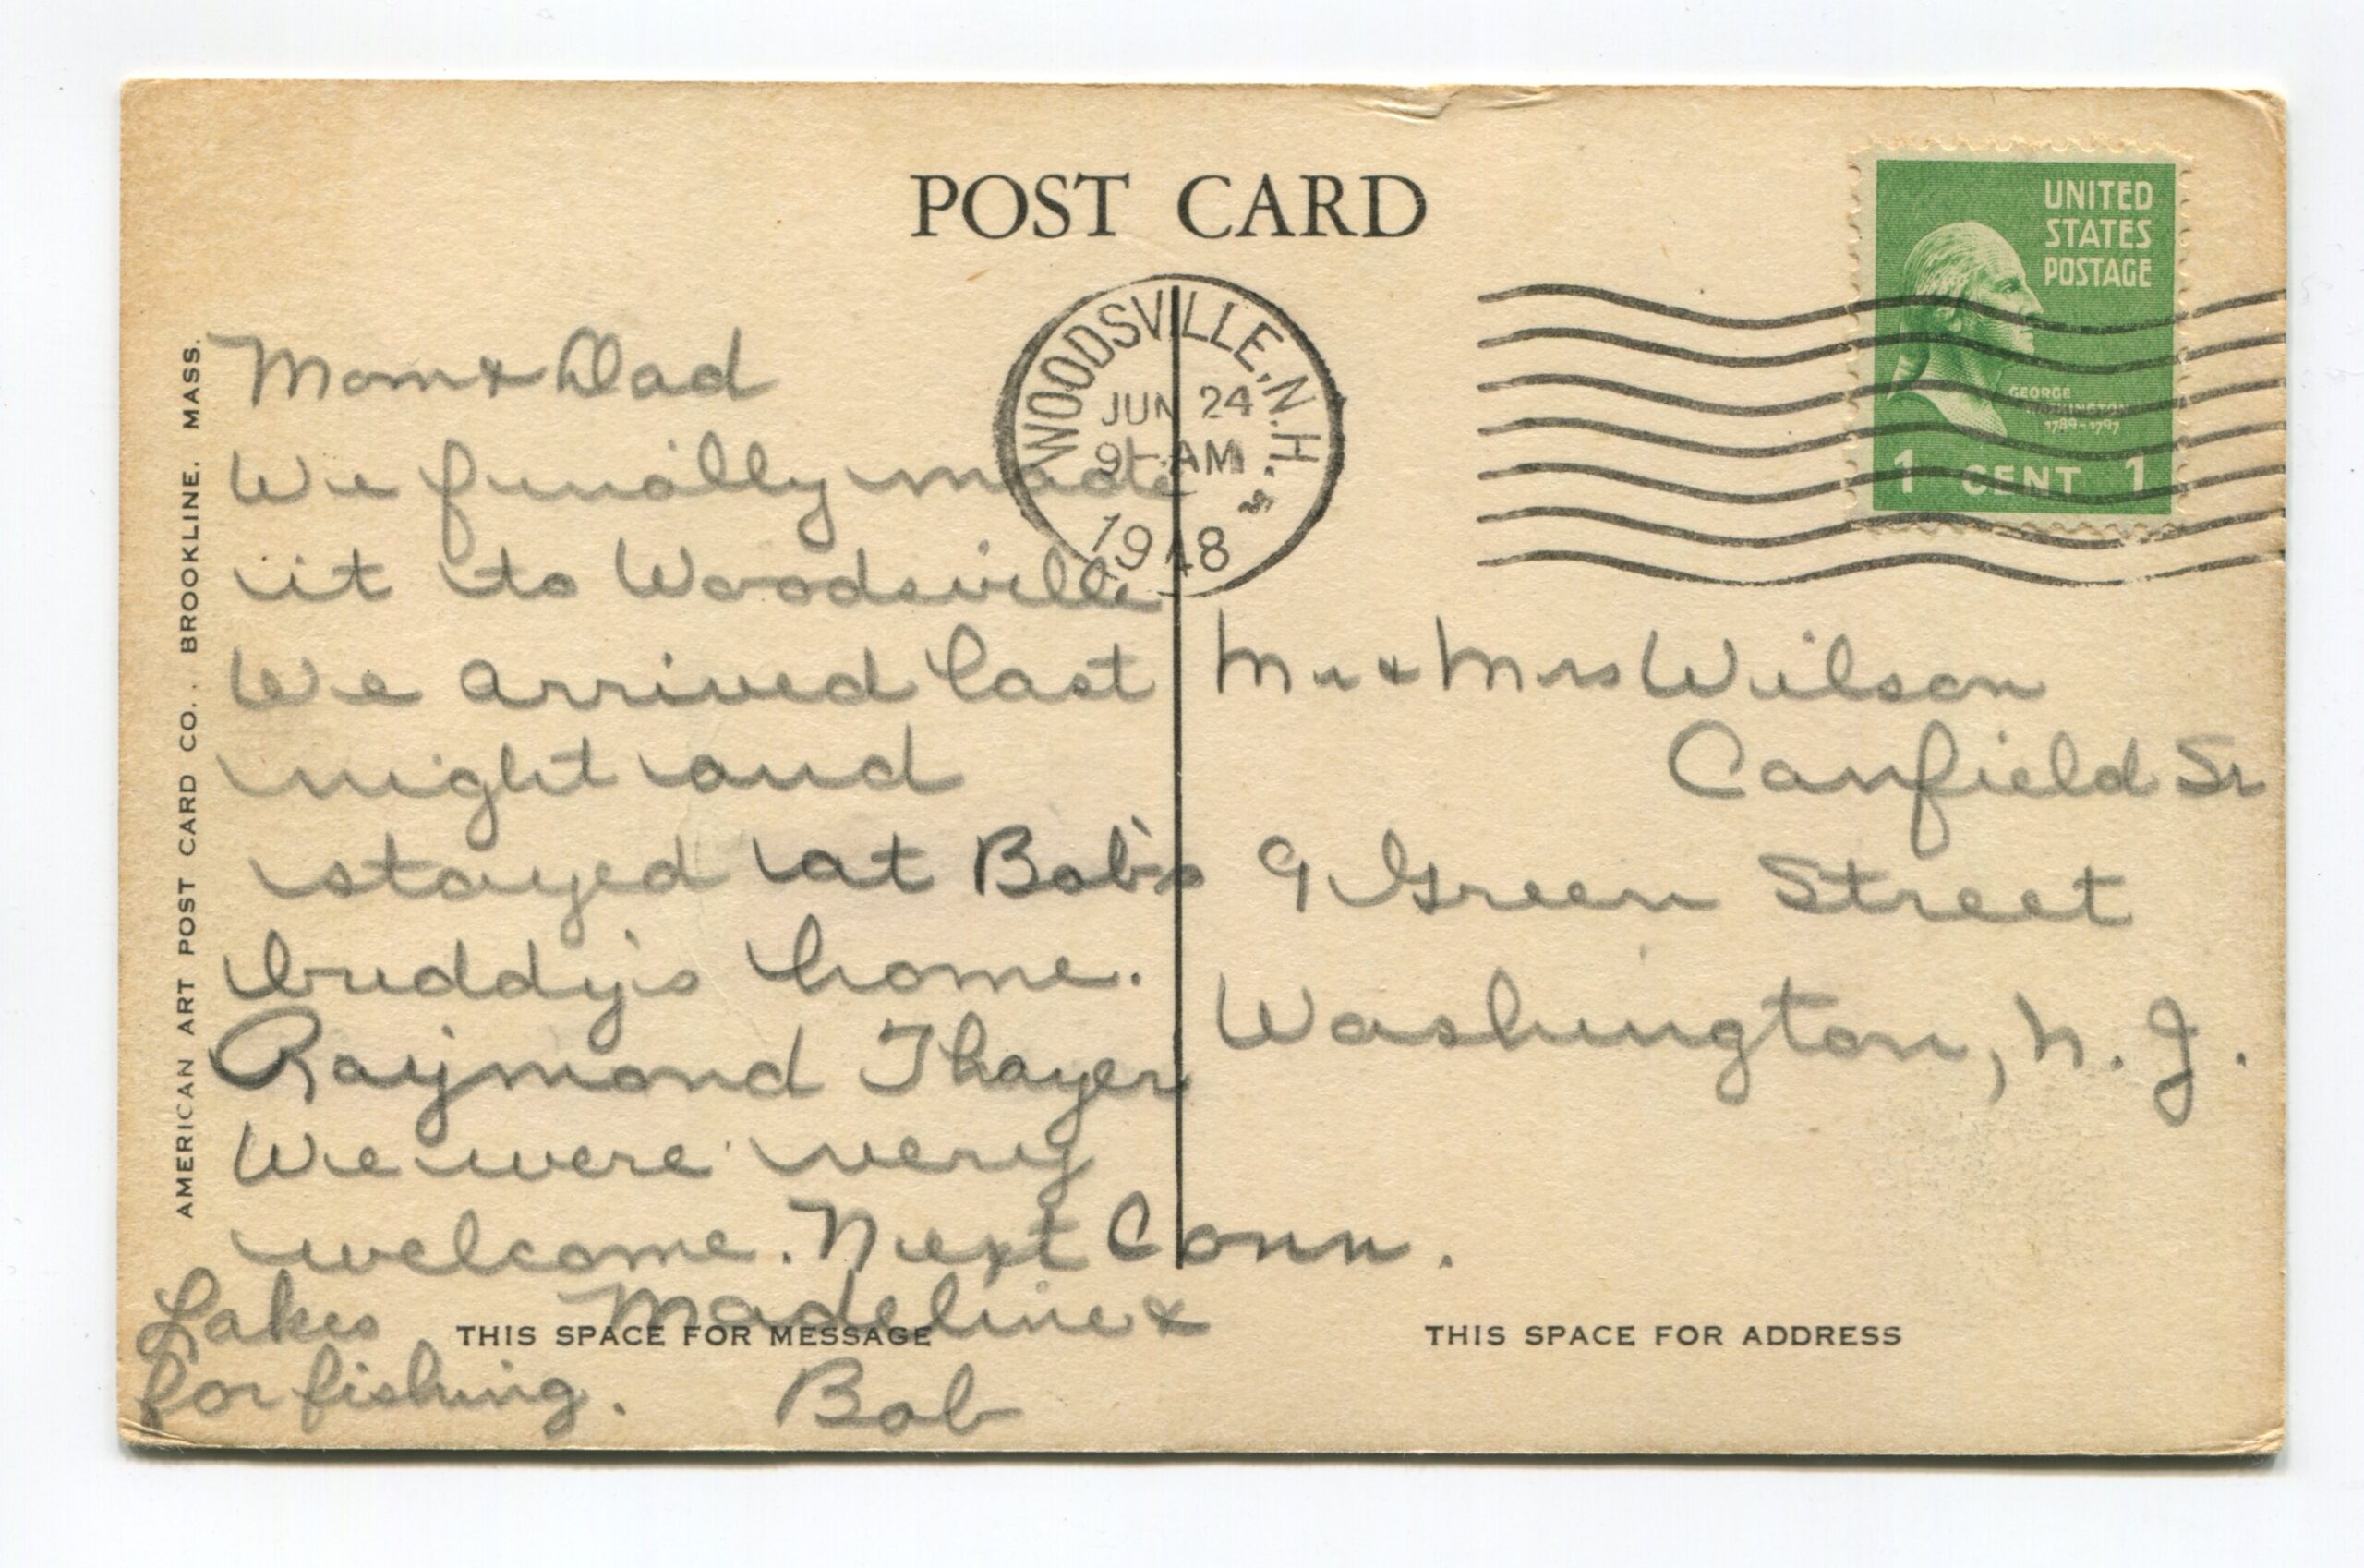 POST CARD
UNITED
STATES
POSTAGE
GEORGE
WASHINGTON
1789-1797
1 CENT 1
WOODSVILLE, N.H.
JUN 24
9-AM
1948
AMERICAN ART POST CARD CO. BROOKLINE, MASS.
Mom & Dad
We finally made
it to Woodsville
We arrived last
night and
stayed at Bob's
buddy's home.
Raymond Thayer
We were very
welcome. Next Conn.
Lakes
for fishing.
Madeline &
Bob
THIS SPACE FOR MESSAGE
Mr & Mrs Wilson
Canfield Sr
9 Green Street
Washington, N. J.
THIS SPACE FOR ADDRESS